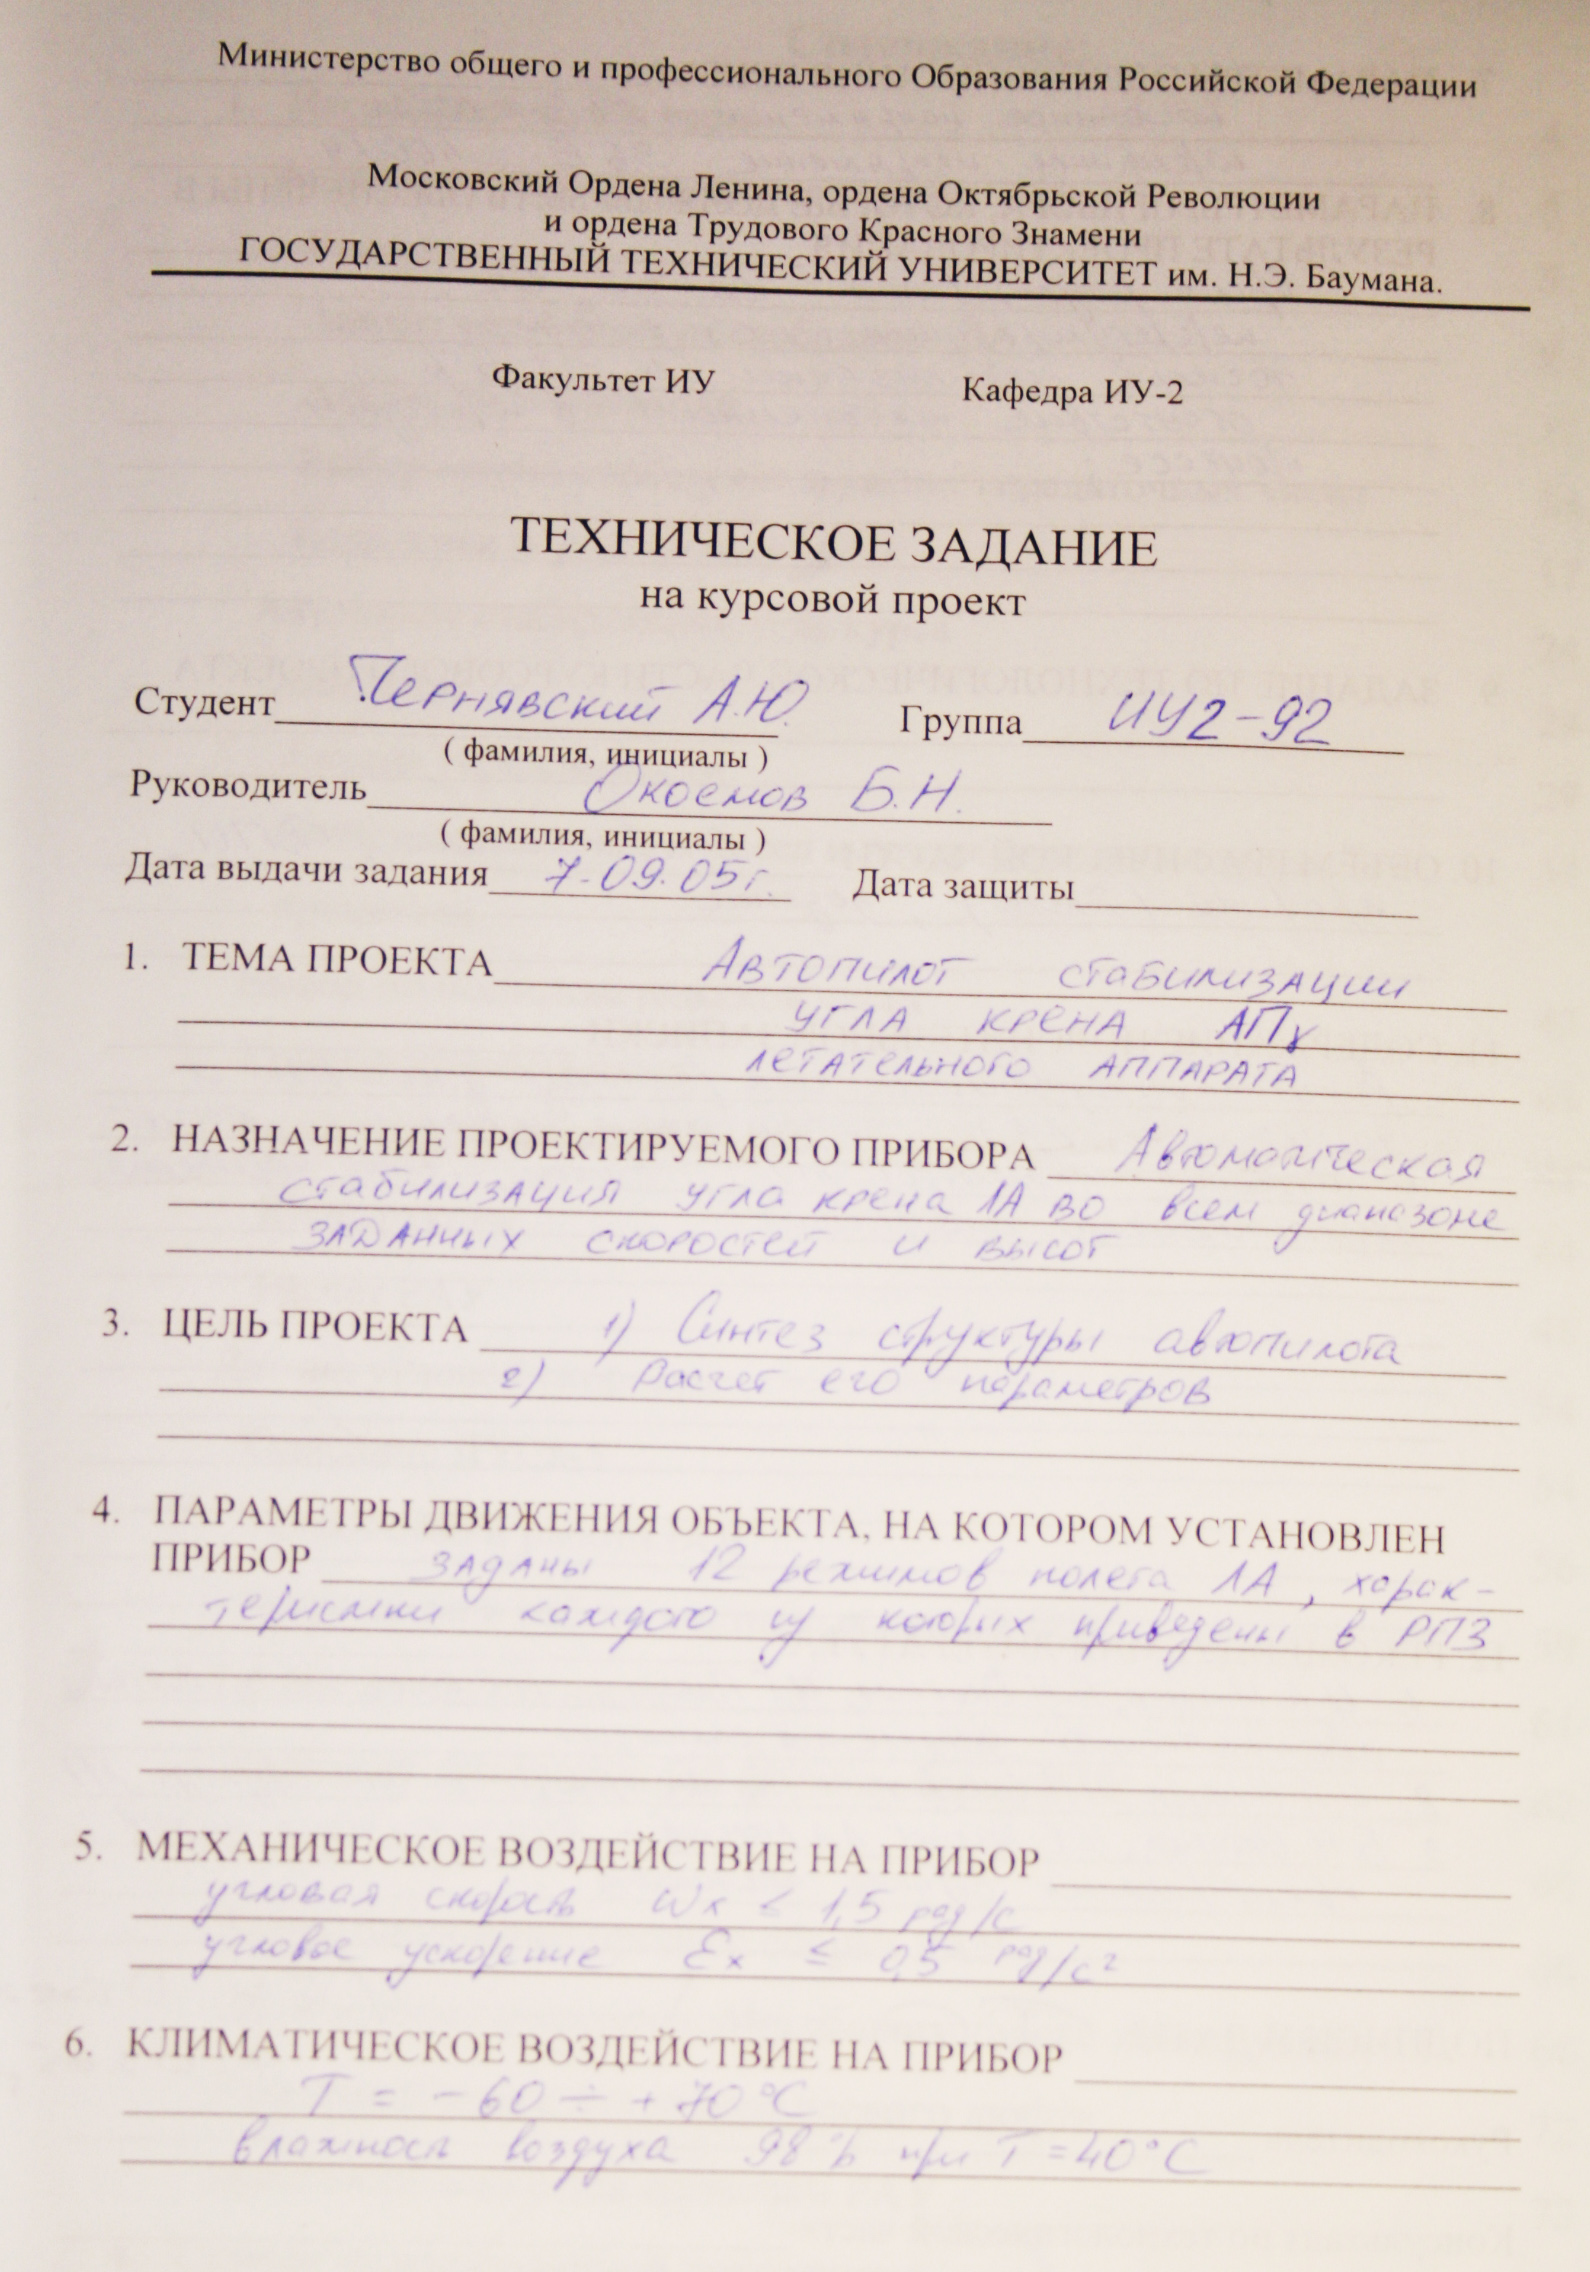 Министерство общего и профессионального Образования Российской Федерации
Московский Ордена Ленина, ордена Октябрьской Революции
и ордена Трудового Красного Знамени
ГОСУДАРСТВЕННЫЙ ТЕХНИЧЕСКИЙ УНИВЕРСИТЕТ им. Н.Э. Баумана.
Факультет ИУ Кафедра ИУ-2
ТЕХНИЧЕСКОЕ ЗАДАНИЕ
на курсовой проект
Студент Чернявский А.Ю. Группа ИУ2-92
( фамилия, инициалы )
Руководитель Окоемов Б.Н.
( фамилия, инициалы )
Дата выдачи задания 7.09.05г. Дата защиты
1. ТЕМА ПРОЕКТА Автопилот стабилизации
угла крена АПγ
летательного аппарата
2. НАЗНАЧЕНИЕ ПРОЕКТИРУЕМОГО ПРИБОРА Автоматическая
стабилизация угла крена ЛА во всем диапазоне
заданных скоростей и высот
3. ЦЕЛЬ ПРОЕКТА 1) Синтез структуры автопилота
2) Расчет его параметров
4. ПАРАМЕТРЫ ДВИЖЕНИЯ ОБЪЕКТА, НА КОТОРОМ УСТАНОВЛЕН
ПРИБОР заданы 12 режимов полета ЛА, харак-
теристики каждого из которых приведены в РПЗ
5. МЕХАНИЧЕСКОЕ ВОЗДЕЙСТВИЕ НА ПРИБОР
угловая скорость ωx ≤ 1,5 рад/с
угловое ускорение Ɛx ≤ 0,5 рад/с²
6. КЛИМАТИЧЕСКОЕ ВОЗДЕЙСТВИЕ НА ПРИБОР
T = -60 ÷ +70°C
влажность воздуха 98% при T=40°C